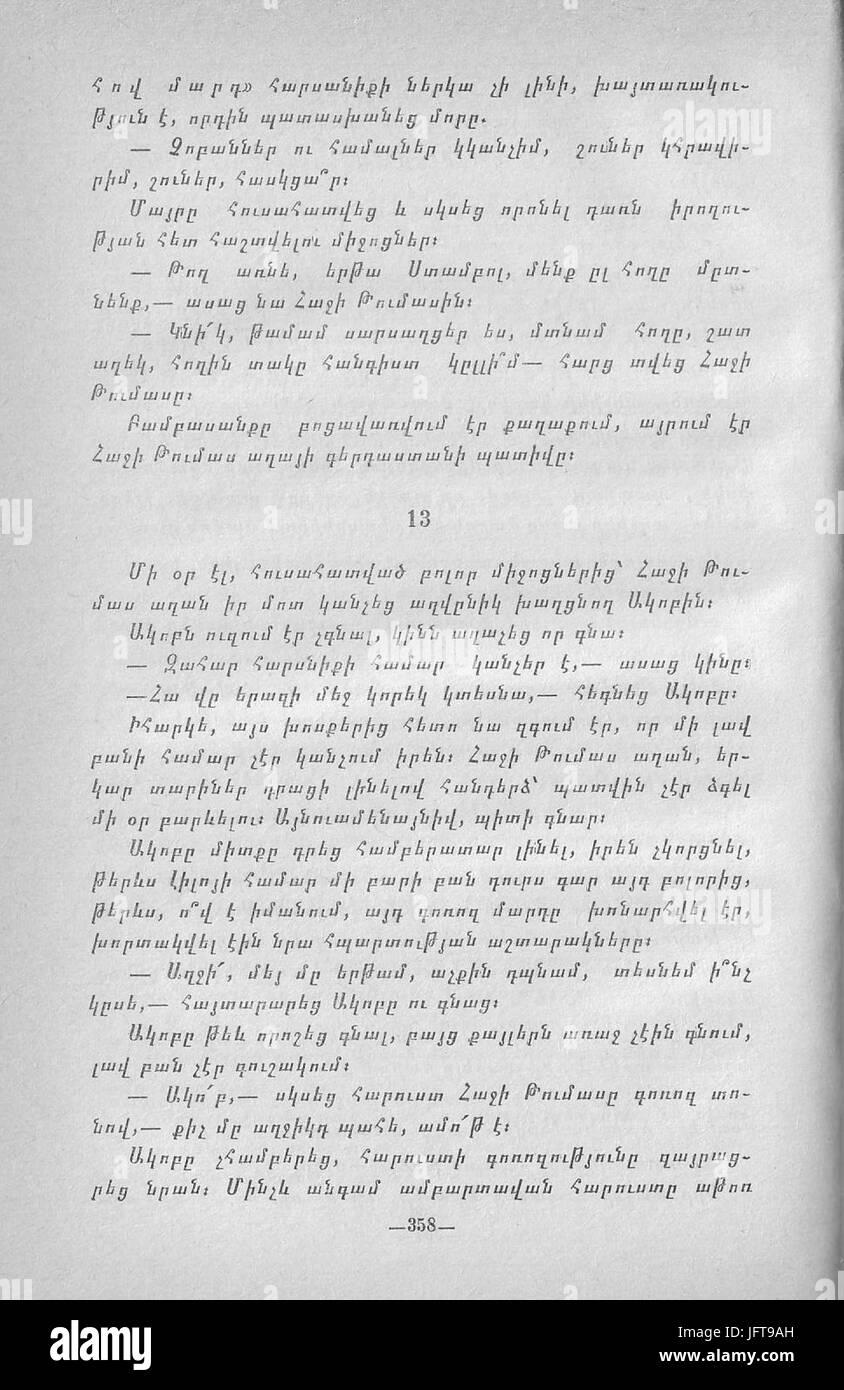 հով մարդ» հարսանիքի ներկա չի լինի, խայտառակու-
թյուն է, որդին պատասխանեց մորը.
— Չոբաններ ու համալներ կկանչիմ, շուներ կհրավի-
րիմ, շուներ, հասկցա՞ր։
Մայրը հուսահատվեց և սկսեց որոնել դառն իրողու-
թյան հետ հաշտվելու միջոցներ։
— Թող առնե, երթա Ստամբոլ, մենք ըլ հողը մըտ-
նենք,— ասաց նա Հաջի Թումասին։
— Կնի՛կ, թամամ սարսաղցեր ես, մտնամ հողը, շատ
աղեկ, հողին տակը հանգիստ կըլլի՞մ— հարց տվեց Հաջի
Թումասը։
Բամբասանքը բոցավառվում էր քաղաքում, այրում էր
Հաջի Թումաս աղայի գերդաստանի պատիվը։
13
Մի օր էլ, հուսահատված բոլոր միջոցներից՝ Հաջի Թու-
մաս աղան իր մոտ կանչեց աղվընիկ խաղցնող Ակոբին։
Ակոբն ուզում էր չգնալ, կինն աղաչեց որ գնա։
— Զահար հարսնիքի համար կանչեր է,— ասաց կինը։
—Հա վը երազի մեջ կորեկ կտեսնա,— հեգնեց Ակոբը։
Իհարկե, այս խոսքերից հետո նա զգում էր, որ մի լավ
բանի համար չէր կանչում իրեն։ Հաջի Թումաս աղան, եր-
կար տարիներ դրացի լինելով հանդերձ՝ պատվին չէր ձգել
մի օր բարևելու։ Այնուամենայնիվ, պիտի գնար։
Ակոբը միտքը դրեց համբերատար լինել, իրեն չկորցնել,
թերևս Լիլոյի համար մի բարի բան դուրս գար այդ բոլորից,
թերևս, ո՞վ է իմանում, այդ գոռոզ մարդը խոնարհվել էր,
խորտակվել էին նրա հպարտության աշտարակները։
— Աղջի՛, մեյ մը երթամ, աչքին դպնամ, տեսնեմ ի՞նչ
կըսե,— հայտարարեց Ակոբը ու գնաց։
Ակոբը թեև որոշեց գնալ, բայց քայլերն առաջ չէին գնում,
լավ բան չէր գուշակում։
— Ակո՛բ,— սկսեց հարուստ Հաջի Թումասը գոռոզ տո-
նով,— քիչ մը աղջիկդ պահե, ամո՛թ է։
Ակոբը չհամբերեց, հարուստի գոռոզությունը զայրաց-
րեց նրան։ Մինչև անգամ ամբարտավան հարուստը աթոռ
—358—
alamy
alamy
Image ID: JFT9AH
www.alamy.com